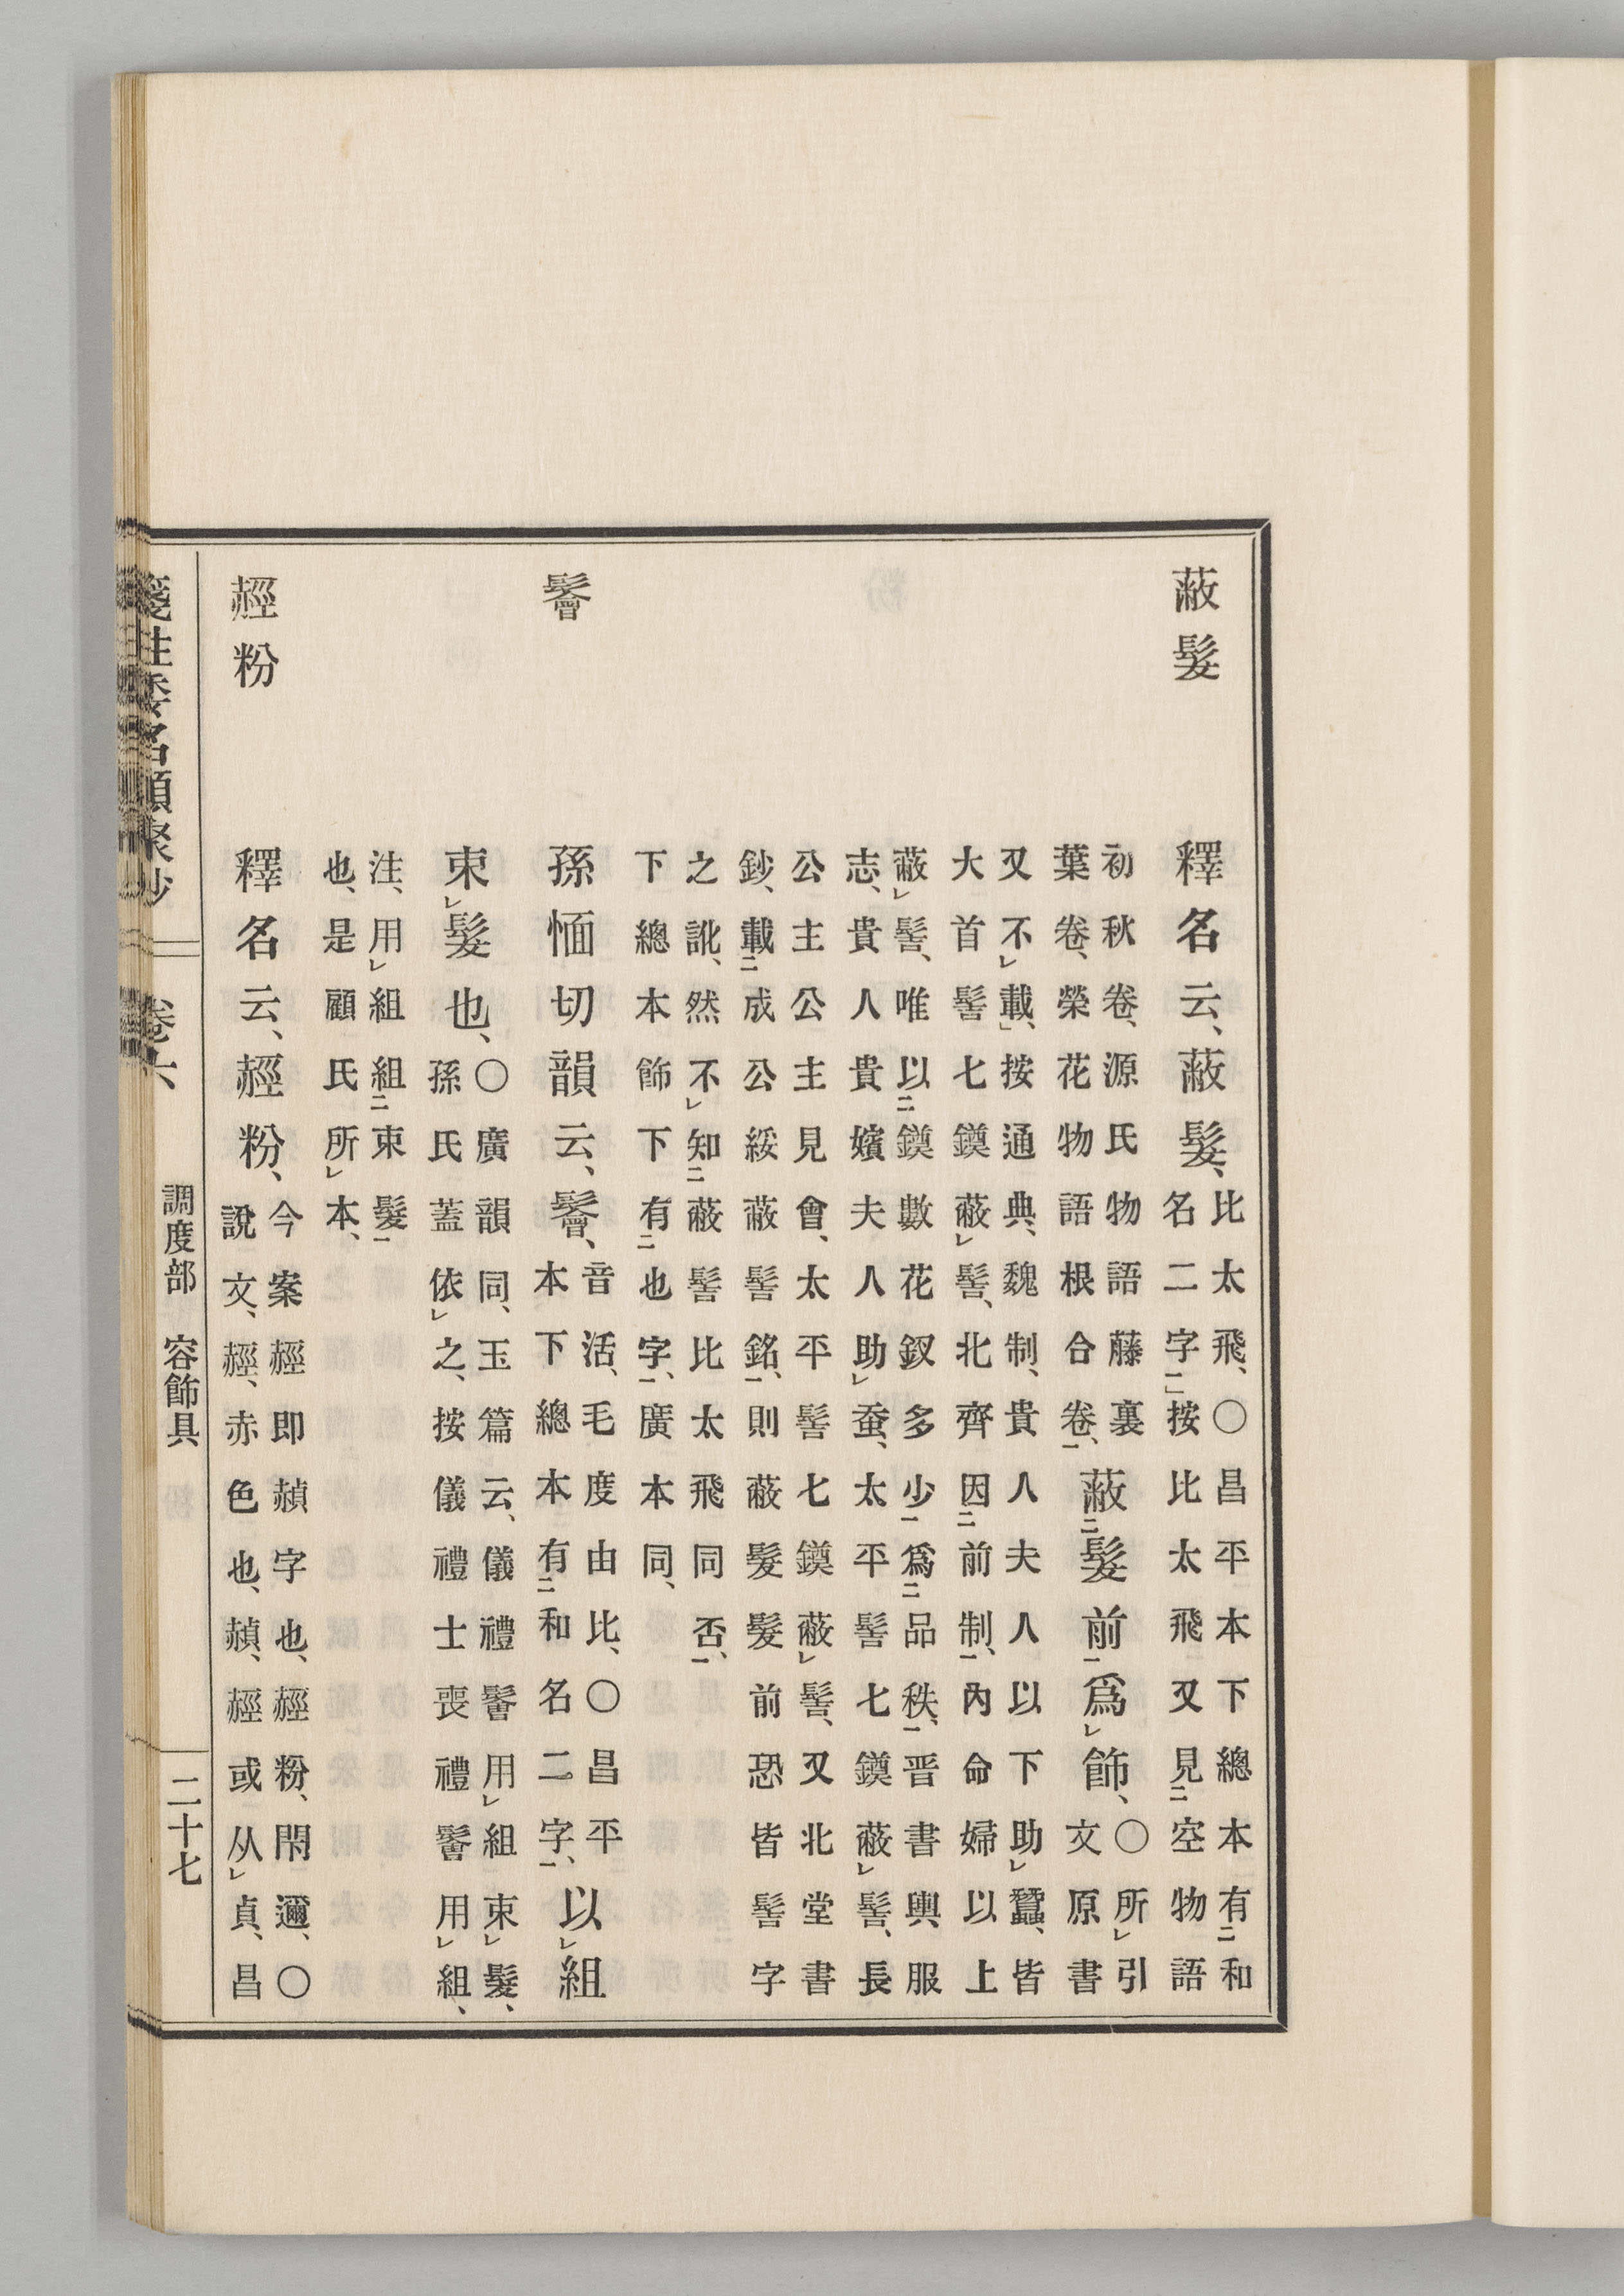 蔽髮
釋名云、蔽髮、
比太飛、〇昌平本下總本有㆓和
名二字㆒」按比太飛又見㆓空物語
初秋卷、源氏物語藤裏
葉卷、榮花物語根合卷㆒、
蔽㆓髮前㆒爲㆑飾、
〇所㆑引
文原書
又不㆑載」、按通典、魏制、貴人夫人以下助㆑蠶、皆
大首髻七鏌蔽㆑髻、北齊因㆓前制㆒、內命婦以上
蔽㆑髻、唯以㆓鏌數花釵多少㆒爲㆓品秩㆒、晋書輿服
志、貴人貴嬪夫人助㆑蚕、太平髻七鏌蔽㆑髻、長
公主公主見會、太平髻七鏌蔽㆑髻、又北堂書
鈔、載㆓成公綏蔽髻銘㆒、則蔽髮髮前恐皆髻字
之訛、然不㆑知㆓蔽髻比太飛同否㆒、
下總本飾下有㆓也字㆒、廣本同、
鬠
孫愐切韻云、鬠、
音活、毛度由比、〇昌平
本下總本有㆓和名二字㆒、
以㆑組
束㆑髮也、
〇廣韻同、玉篇云、儀禮鬠用㆑組束㆑髮、
孫氏蓋依㆑之、按儀禮士喪禮鬠用㆑組、
注、用㆑組組㆓束髮㆒
也、是顧氏所㆑本、
䞓粉
釋名云、䞓粉、
今案䞓即赬字也、䞓粉、閇邇、〇
說文、䞓、赤色也、赬、䞓或从㆑貞、昌
箋注倭名類聚抄 卷六 調度部 容飾具 二十七